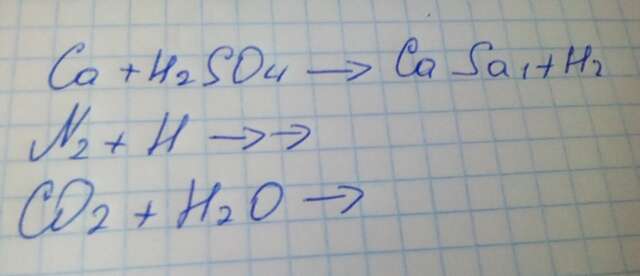 Ca + H₂SO₄ → Ca Sa₁ + H₂
N₂ + H →→
CO₂ + H₂O →